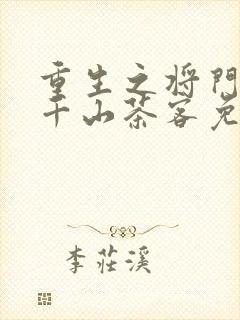 重生之将门
千山茶客免
李莊溪